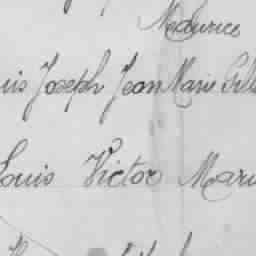 Maurice
uis Joseph Jean Marie Gill
Louis Victor Mari